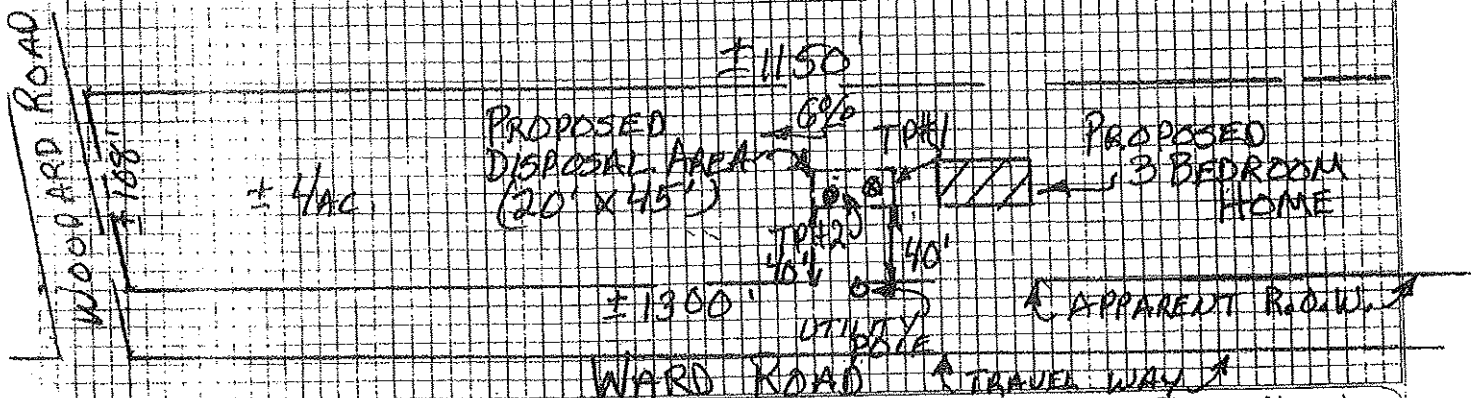 WOODARD ROAD
± 168'
± 1150'
± 4/AC.
PROPOSED
DISPOSAL AREA
(20' X 45')
6%
TP#1
TP#2
40'
40'
PROPOSED
3 BEDROOM
HOME
± 1300'
UTILITY
POLE
APPARENT R.O.W.
WARD ROAD
TRAVEL WAY